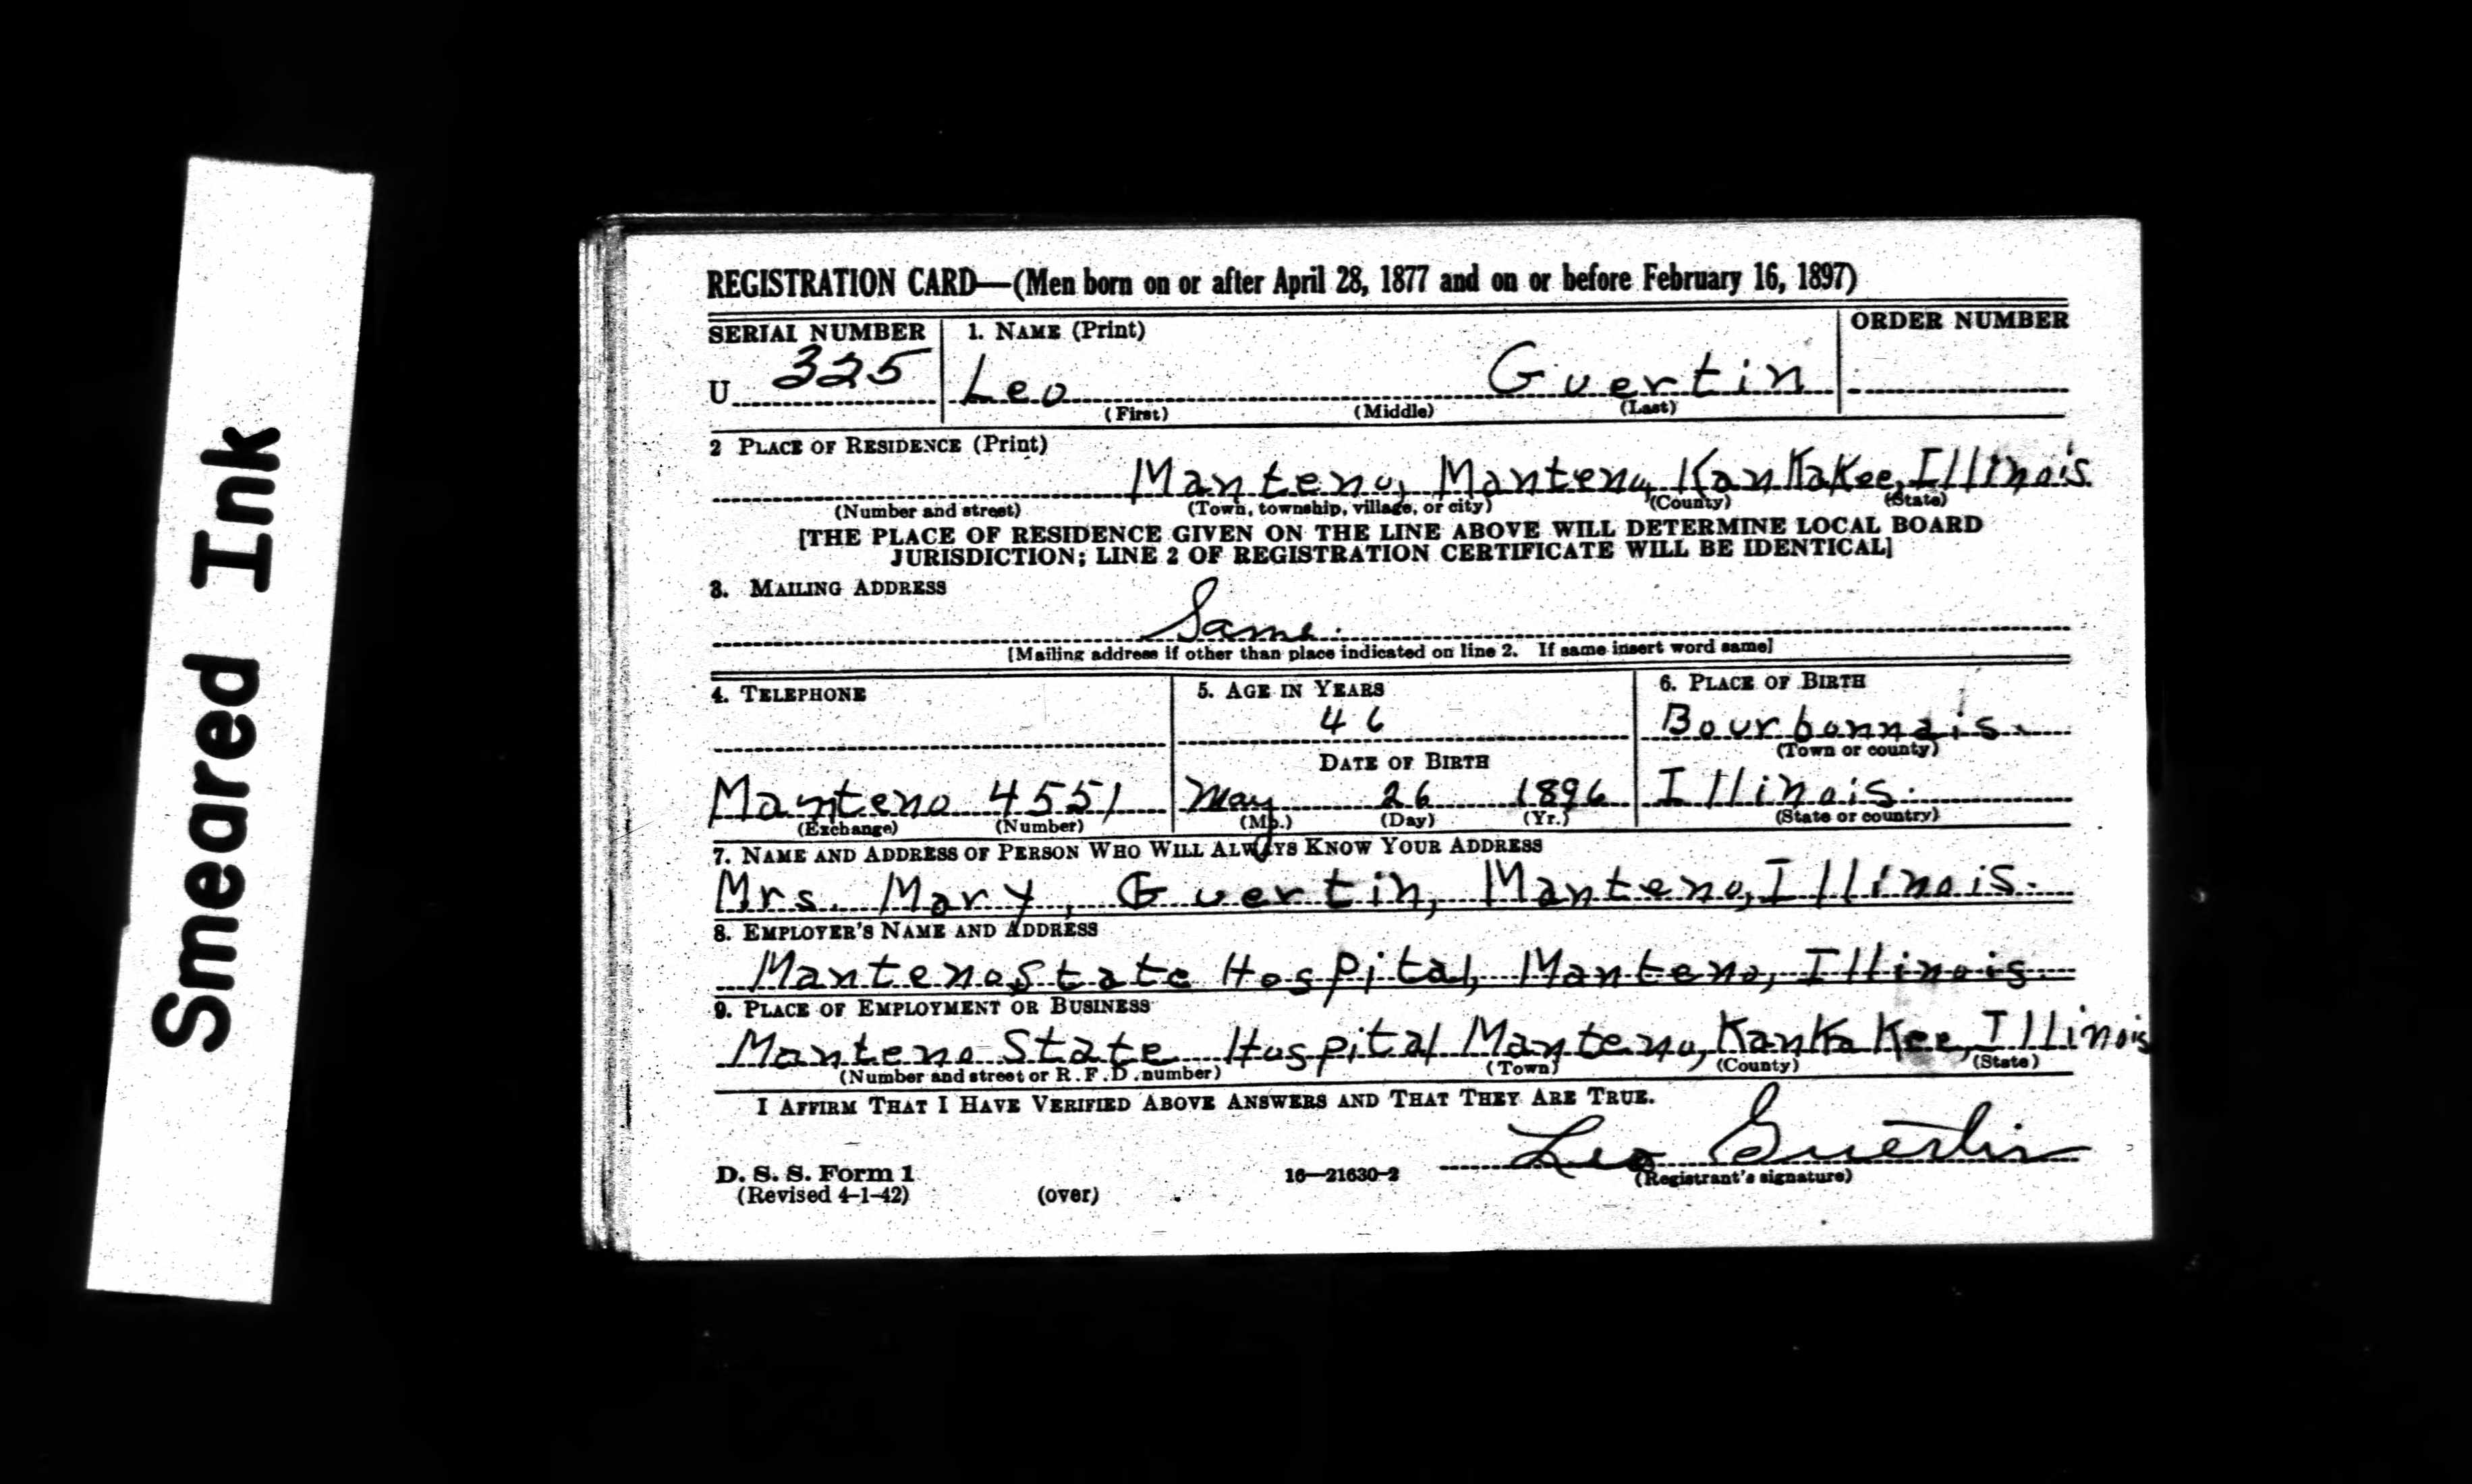 Smeared Ink
REGISTRATION CARD—(Men born on or after April 28, 1877 and on or before February 16, 1897)
SERIAL NUMBER 1. NAME (Print) ORDER NUMBER
U 325 Leo Guertin
(First) (Middle) (Last)
2 PLACE OF RESIDENCE (Print)
Manteno, Manteno, KanKaKee, Illinois.
(Number and street) (Town, township, village, or city) (County) (State)
[THE PLACE OF RESIDENCE GIVEN ON THE LINE ABOVE WILL DETERMINE LOCAL BOARD
JURISDICTION; LINE 2 OF REGISTRATION CERTIFICATE WILL BE IDENTICAL]
3. MAILING ADDRESS
Same.
[Mailing address if other than place indicated on line 2. If same insert word same]
4. TELEPHONE 5. AGE IN YEARS 6. PLACE OF BIRTH
46 Bourbonnais.
DATE OF BIRTH (Town or county)
Manteno 4551 May 26 1896 Illinois.
(Exchange) (Number) (Mo.) (Day) (Yr.) (State or country)
7. NAME AND ADDRESS OF PERSON WHO WILL ALWAYS KNOW YOUR ADDRESS
Mrs. Mary, Guertin, Manteno, Illinois.
8. EMPLOYER'S NAME AND ADDRESS
Manteno State Hospital, Manteno, Illinois
9. PLACE OF EMPLOYMENT OR BUSINESS
Manteno State Hospital Manteno, KanKaKee, Illinois
(Number and street or R. F. D. number) (Town) (County) (State)
I AFFIRM THAT I HAVE VERIFIED ABOVE ANSWERS AND THAT THEY ARE TRUE.
Leo Guertin
D. S. S. Form 1 16—21630-2 (Registrant's signature)
(Revised 4-1-42) (over)